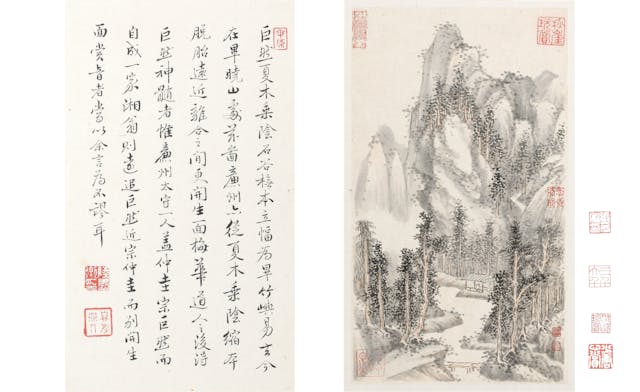 巨然夏木垂陰石谷橅本立幅為畢竹嶼易去今
在畢曉山處茲啚廉州亦從夏木垂陰縮本
脫胎遠近離合之間更開生面梅華道人之後得
巨然神髓者惟廉州太守一人蓋仲圭宗巨然而
自成一家湘翁則遠追巨然近宗仲圭而別開生
面賞音者當以余言為不謬耳